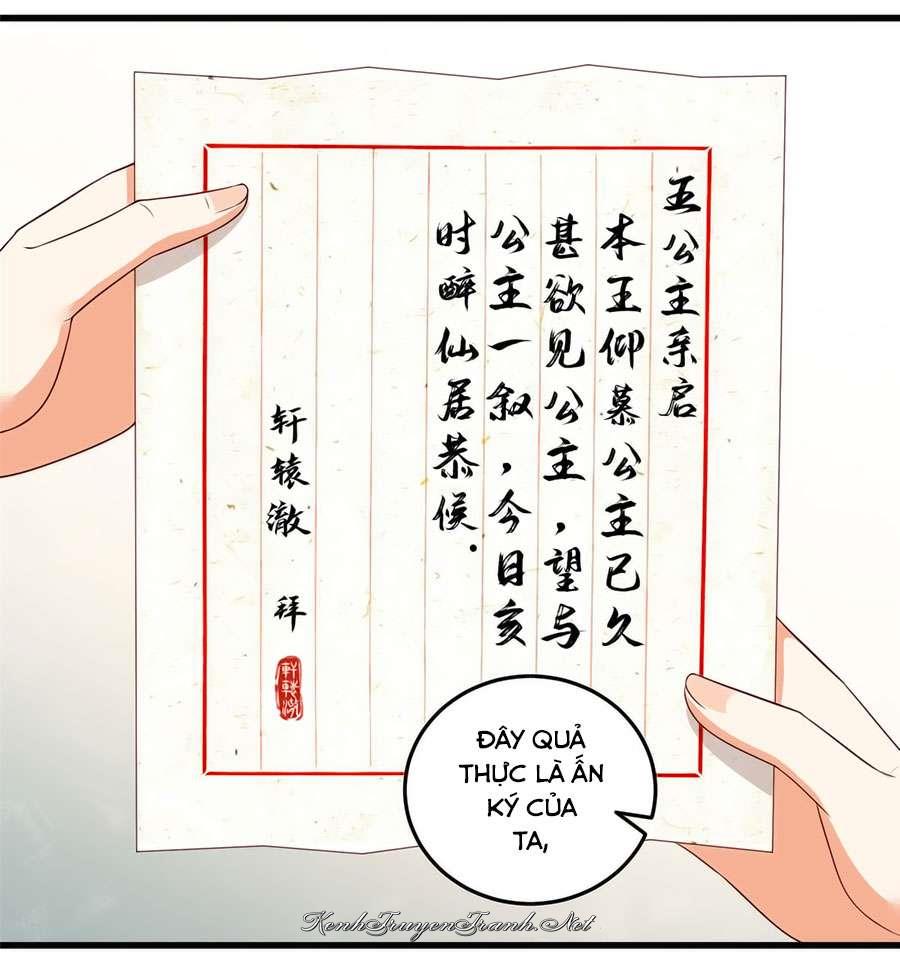 五公主亲启
本王仰慕公主已久
甚欲见公主，望与
公主一叙，今日亥
时醉仙居恭候.
轩辕澈 拜
軒轅澈
ĐÂY QUẢ
THỰC LÀ ẤN
KÝ CỦA
TA,
KenhTruyenTranh.Net